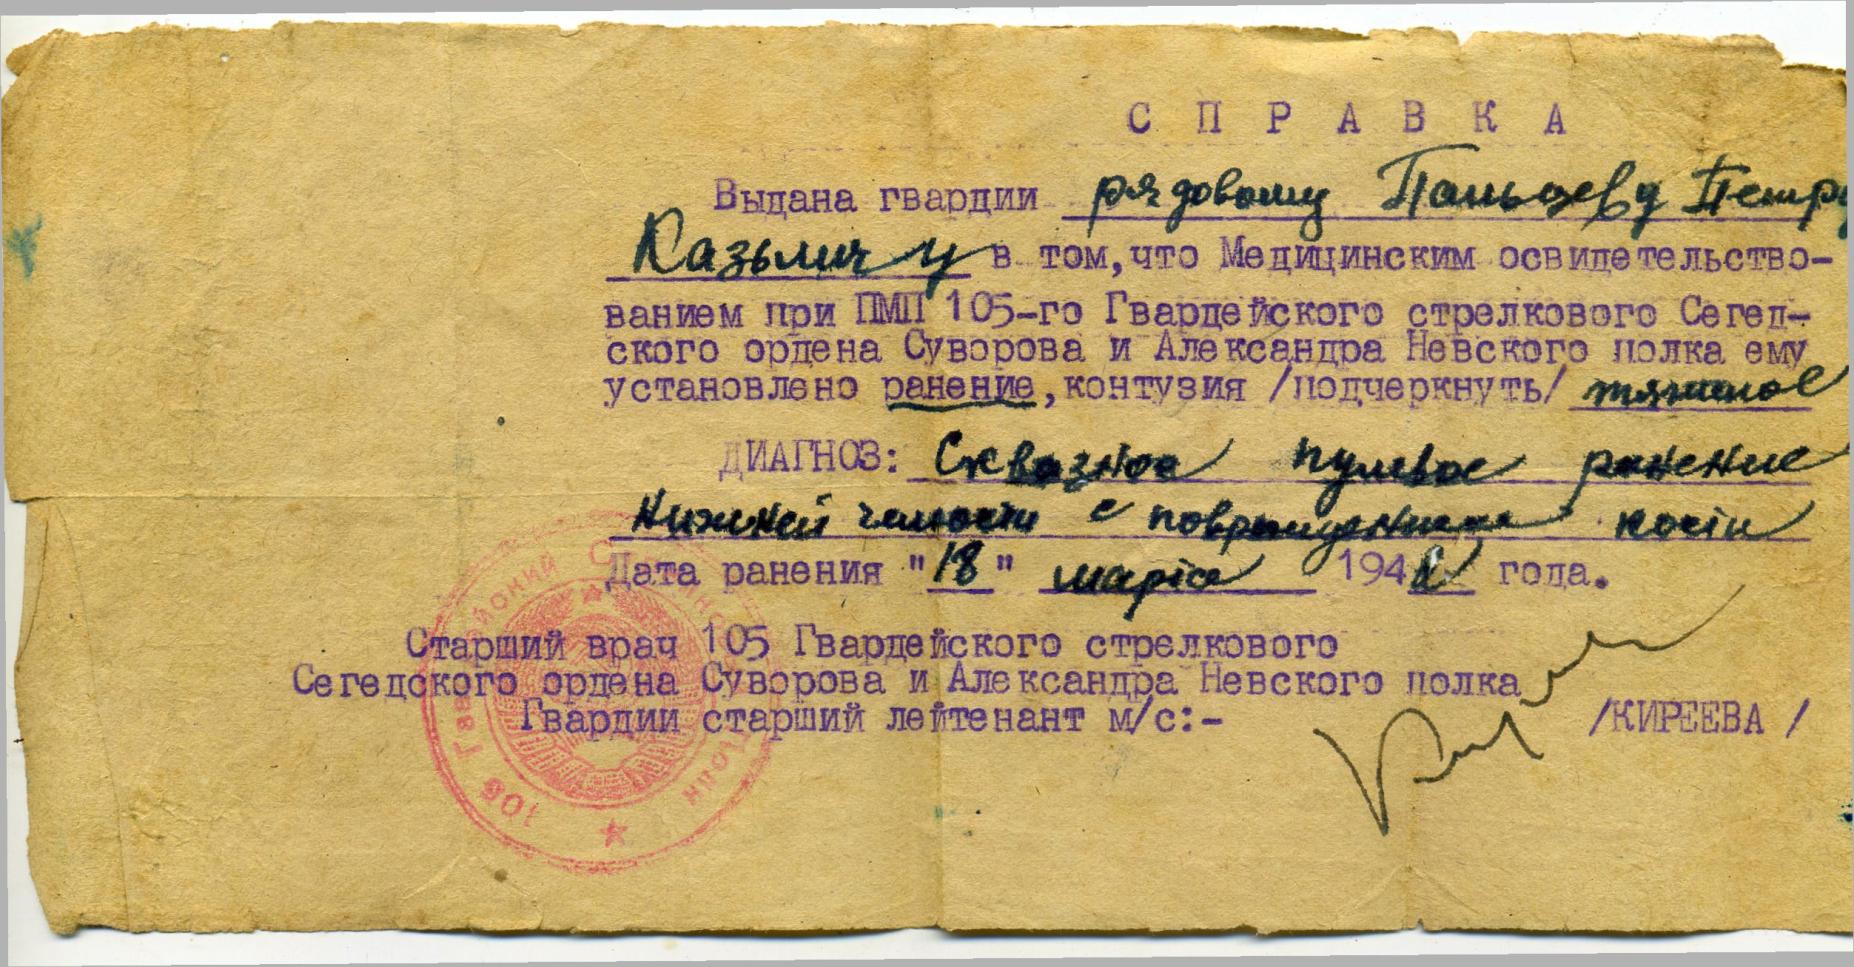 СПРАВКА
Выдана гвардии рядовому Пальцеву Петру
Казьмичу в том, что Медицинским освидетельство-
ванием при ПМП 105-го Гвардейского стрелкового Сегед-
ского ордена Суворова и Александра Невского полка ему
установлено ранение, контузия /подчеркнуть/ тяжелое
ДИАГНОЗ: Сквозное пулевое ранение
нижней челюсти с повреждением кости
Дата ранения "18" марта 194 года.
Старший врач 105 Гвардейского стрелкового
Сегедского ордена Суворова и Александра Невского полка
Гвардии старший лейтенант м/с:- /КИРЕЕВА /